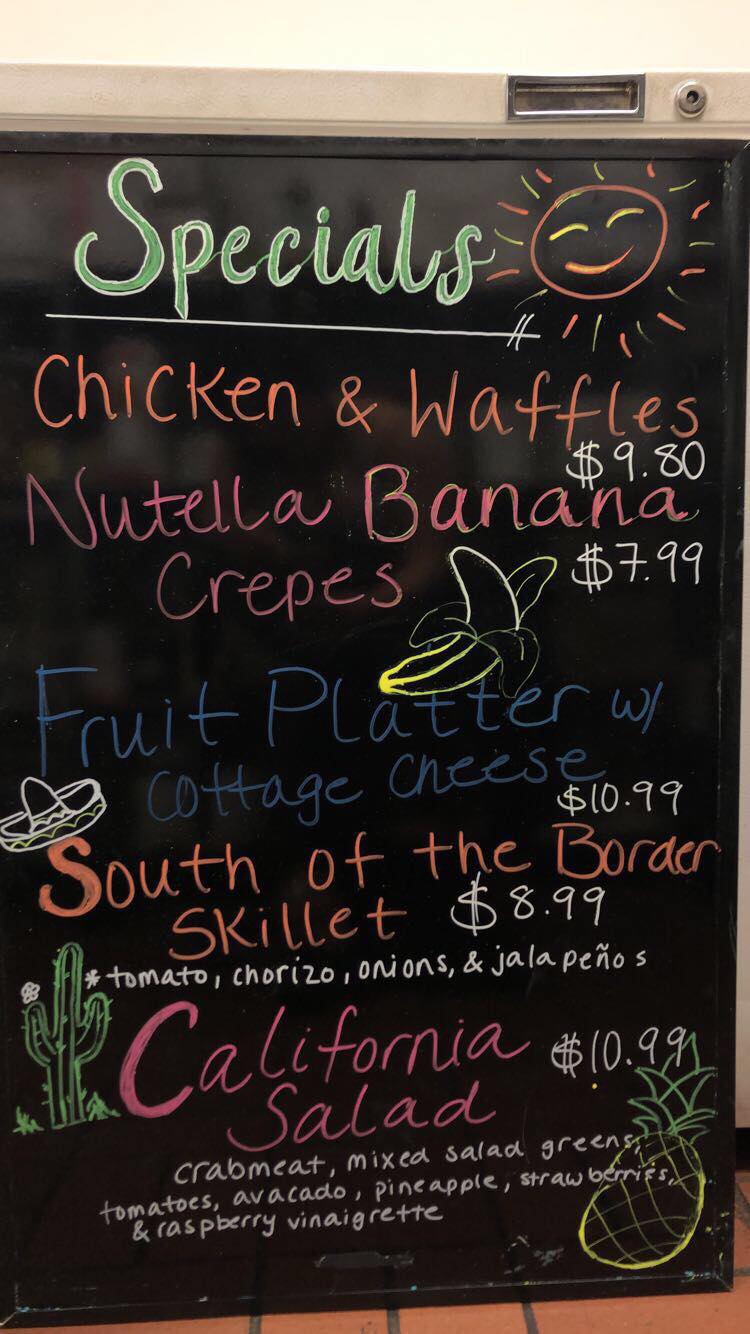 Specials
Chicken & Waffles
$9.80
Nutella Banana
Crepes $7.99
Fruit Platter w/
cottage cheese
$10.99
South of the Border
Skillet $8.99
*tomato, chorizo, onions, & jalapeños
California $10.99
Salad
crabmeat, mixed salad greens,
tomatoes, avacado, pineapple, strawberries,
& raspberry vinaigrette